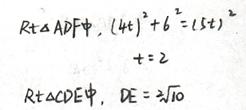 Rt△ADF中, (4t)²+6²=(5t)²
t=2
Rt△CDE中, DE=2√10